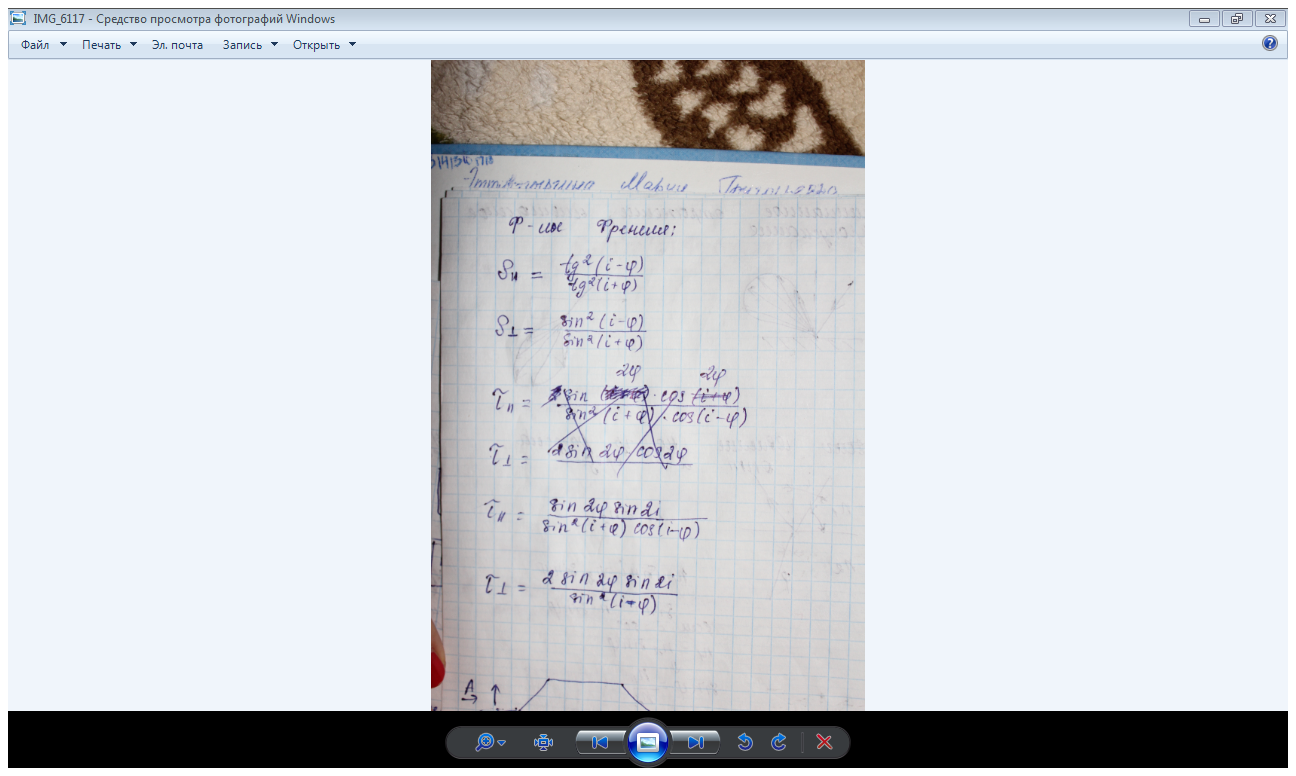 IMG_6117 - Средство просмотра фотографий Windows
Файл Печать Эл. почта Запись Открыть
Мария
Ф-лы Френеля:
S_II = tg²(i-φ) / tg²(i+φ)
S⊥ = sin²(i-φ) / sin²(i+φ)
2φ 2φ
τ_II = sin · cos (i+φ) / sin²(i+φ) · cos(i-φ)
τ⊥ = 2 sin 2φ cos 2φ
τ_II = sin 2φ sin 2i / sin²(i+φ) cos(i-φ)
τ⊥ = 2 sin 2φ sin 2i / sin²(i+φ)
A